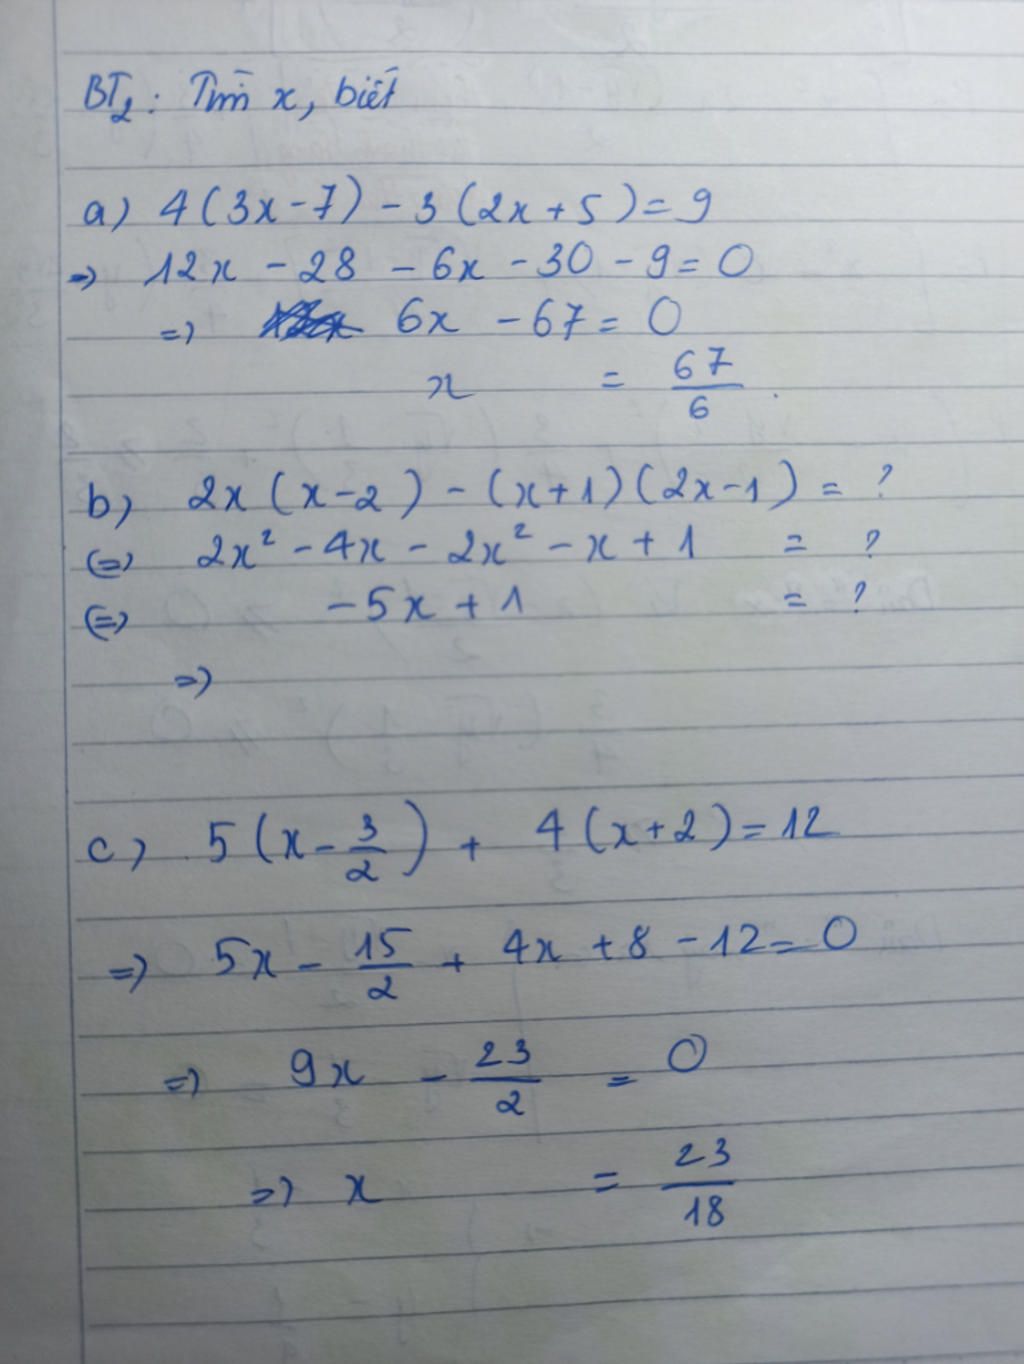 BT2: Tìm x, biết
a) 4(3x-7) - 3(2x+5) = 9
=> 12x - 28 - 6x - 30 - 9 = 0
=> 6x - 67 = 0
x = 67/6.
b) 2x(x-2) - (x+1)(2x-1) = ?
(=) 2x² - 4x - 2x² - x + 1 = ?
(=) -5x + 1 = ?
=>
c) 5(x - 3/2) + 4(x+2) = 12
=> 5x - 15/2 + 4x + 8 - 12 = 0
=> 9x - 23/2 = 0
=> x = 23/18